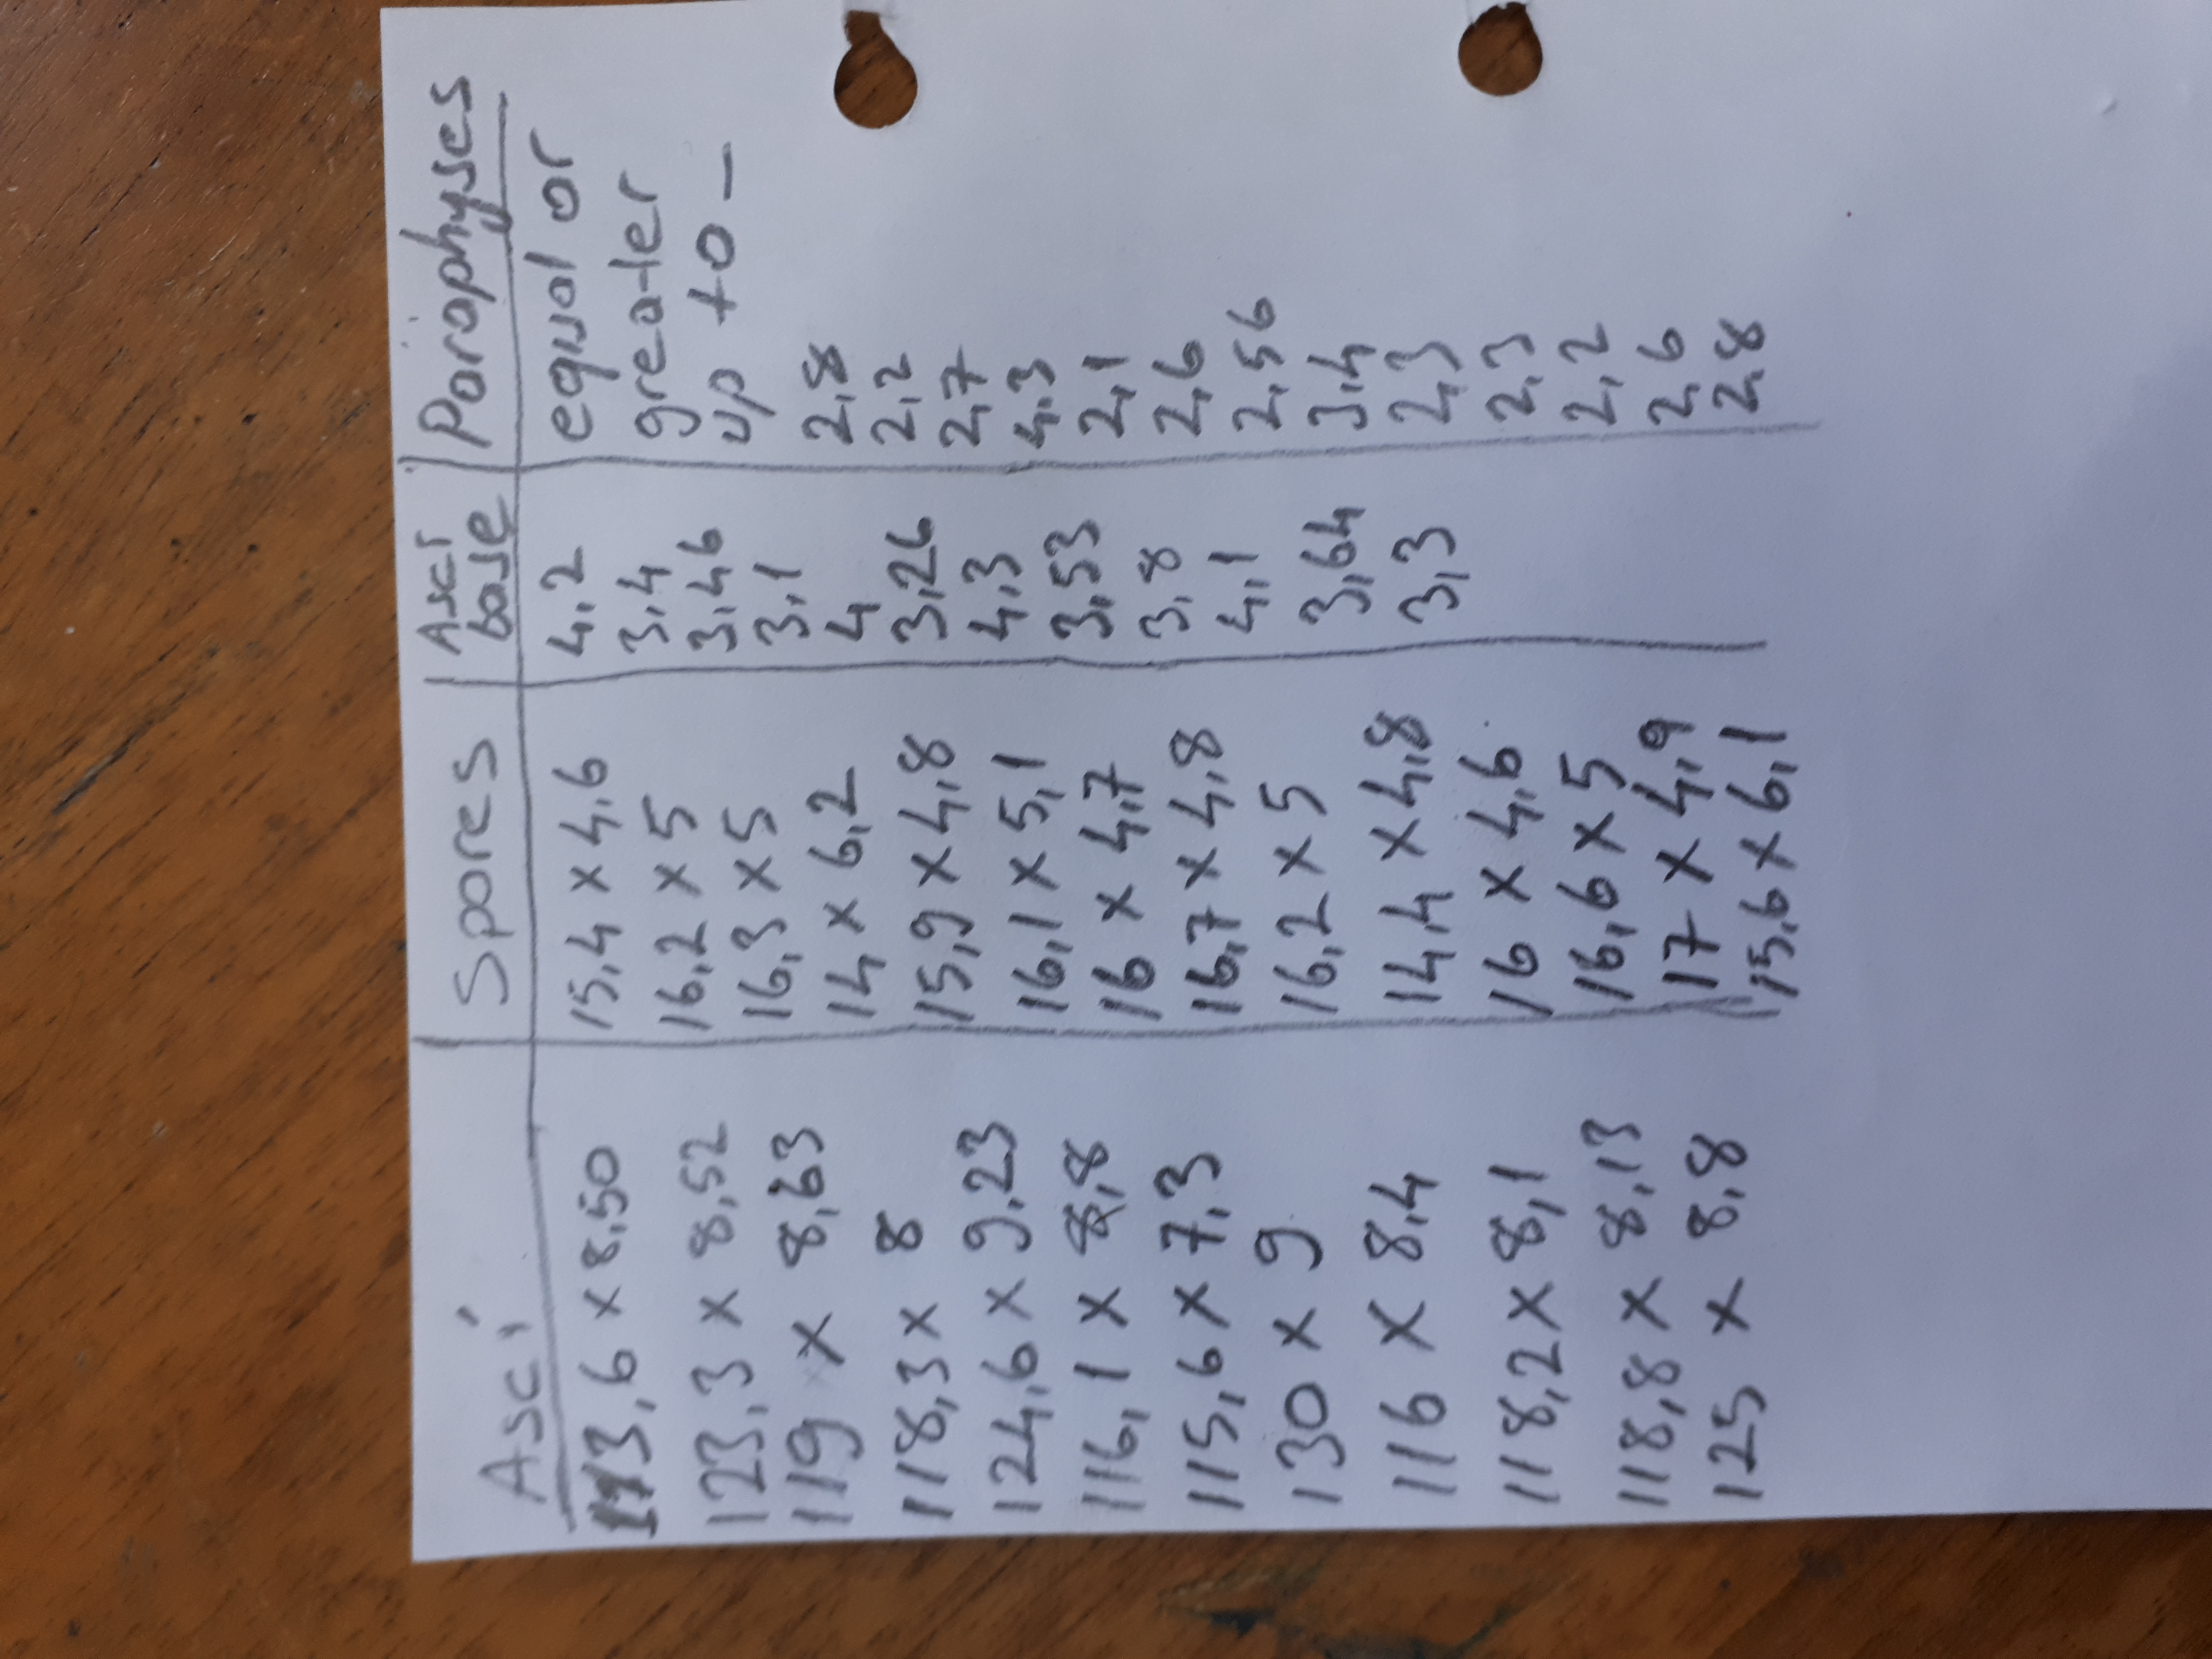 Asci
113,6 x 8,50
123,3 x 8,52
119 x 8,63
118,3 x 8
124,6 x 9,23
116,1 x 8,8
115,6 x 7,3
130 x 9
116 x 8,4
118,2 x 8,1
118,8 x 8,13
125 x 8,8
Spores
15,4 x 4,6
16,2 x 5
16,3 x 5
14 x 6,2
15,9 x 4,8
16,1 x 5,1
16 x 4,7
16,7 x 4,8
16,2 x 5
14,4 x 4,8
16 x 4,6
16,6 x 5
17 x 4,9
15,6 x 6,1
Asci
base
4,2
3,4
3,46
3,1
4
3,26
4,3
3,53
3,8
4,1
3,64
3,3
Paraphyses
equal or
greater
up to _
2,8
2,2
2,7
4,3
2,1
2,6
2,56
3,4
2,3
2,3
2,2
2,6
2,8